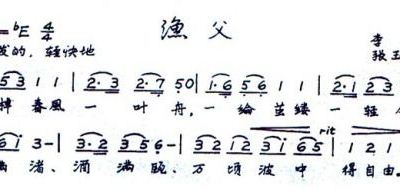 =♭E 4/4 渔父 李
的，轻快地 张玉
53 1 1 | 2·3 2·7 50 | 1·6 56 1 1 | 2·1 23
棹 春風 一 叶 舟，一 纶 茧缕 一 轻
61 3- | 3·2 356- | 32 12 31 65 | 1 2 1
满 渚、酒 满 瓯、万 顷 波 中 得自由。
rit